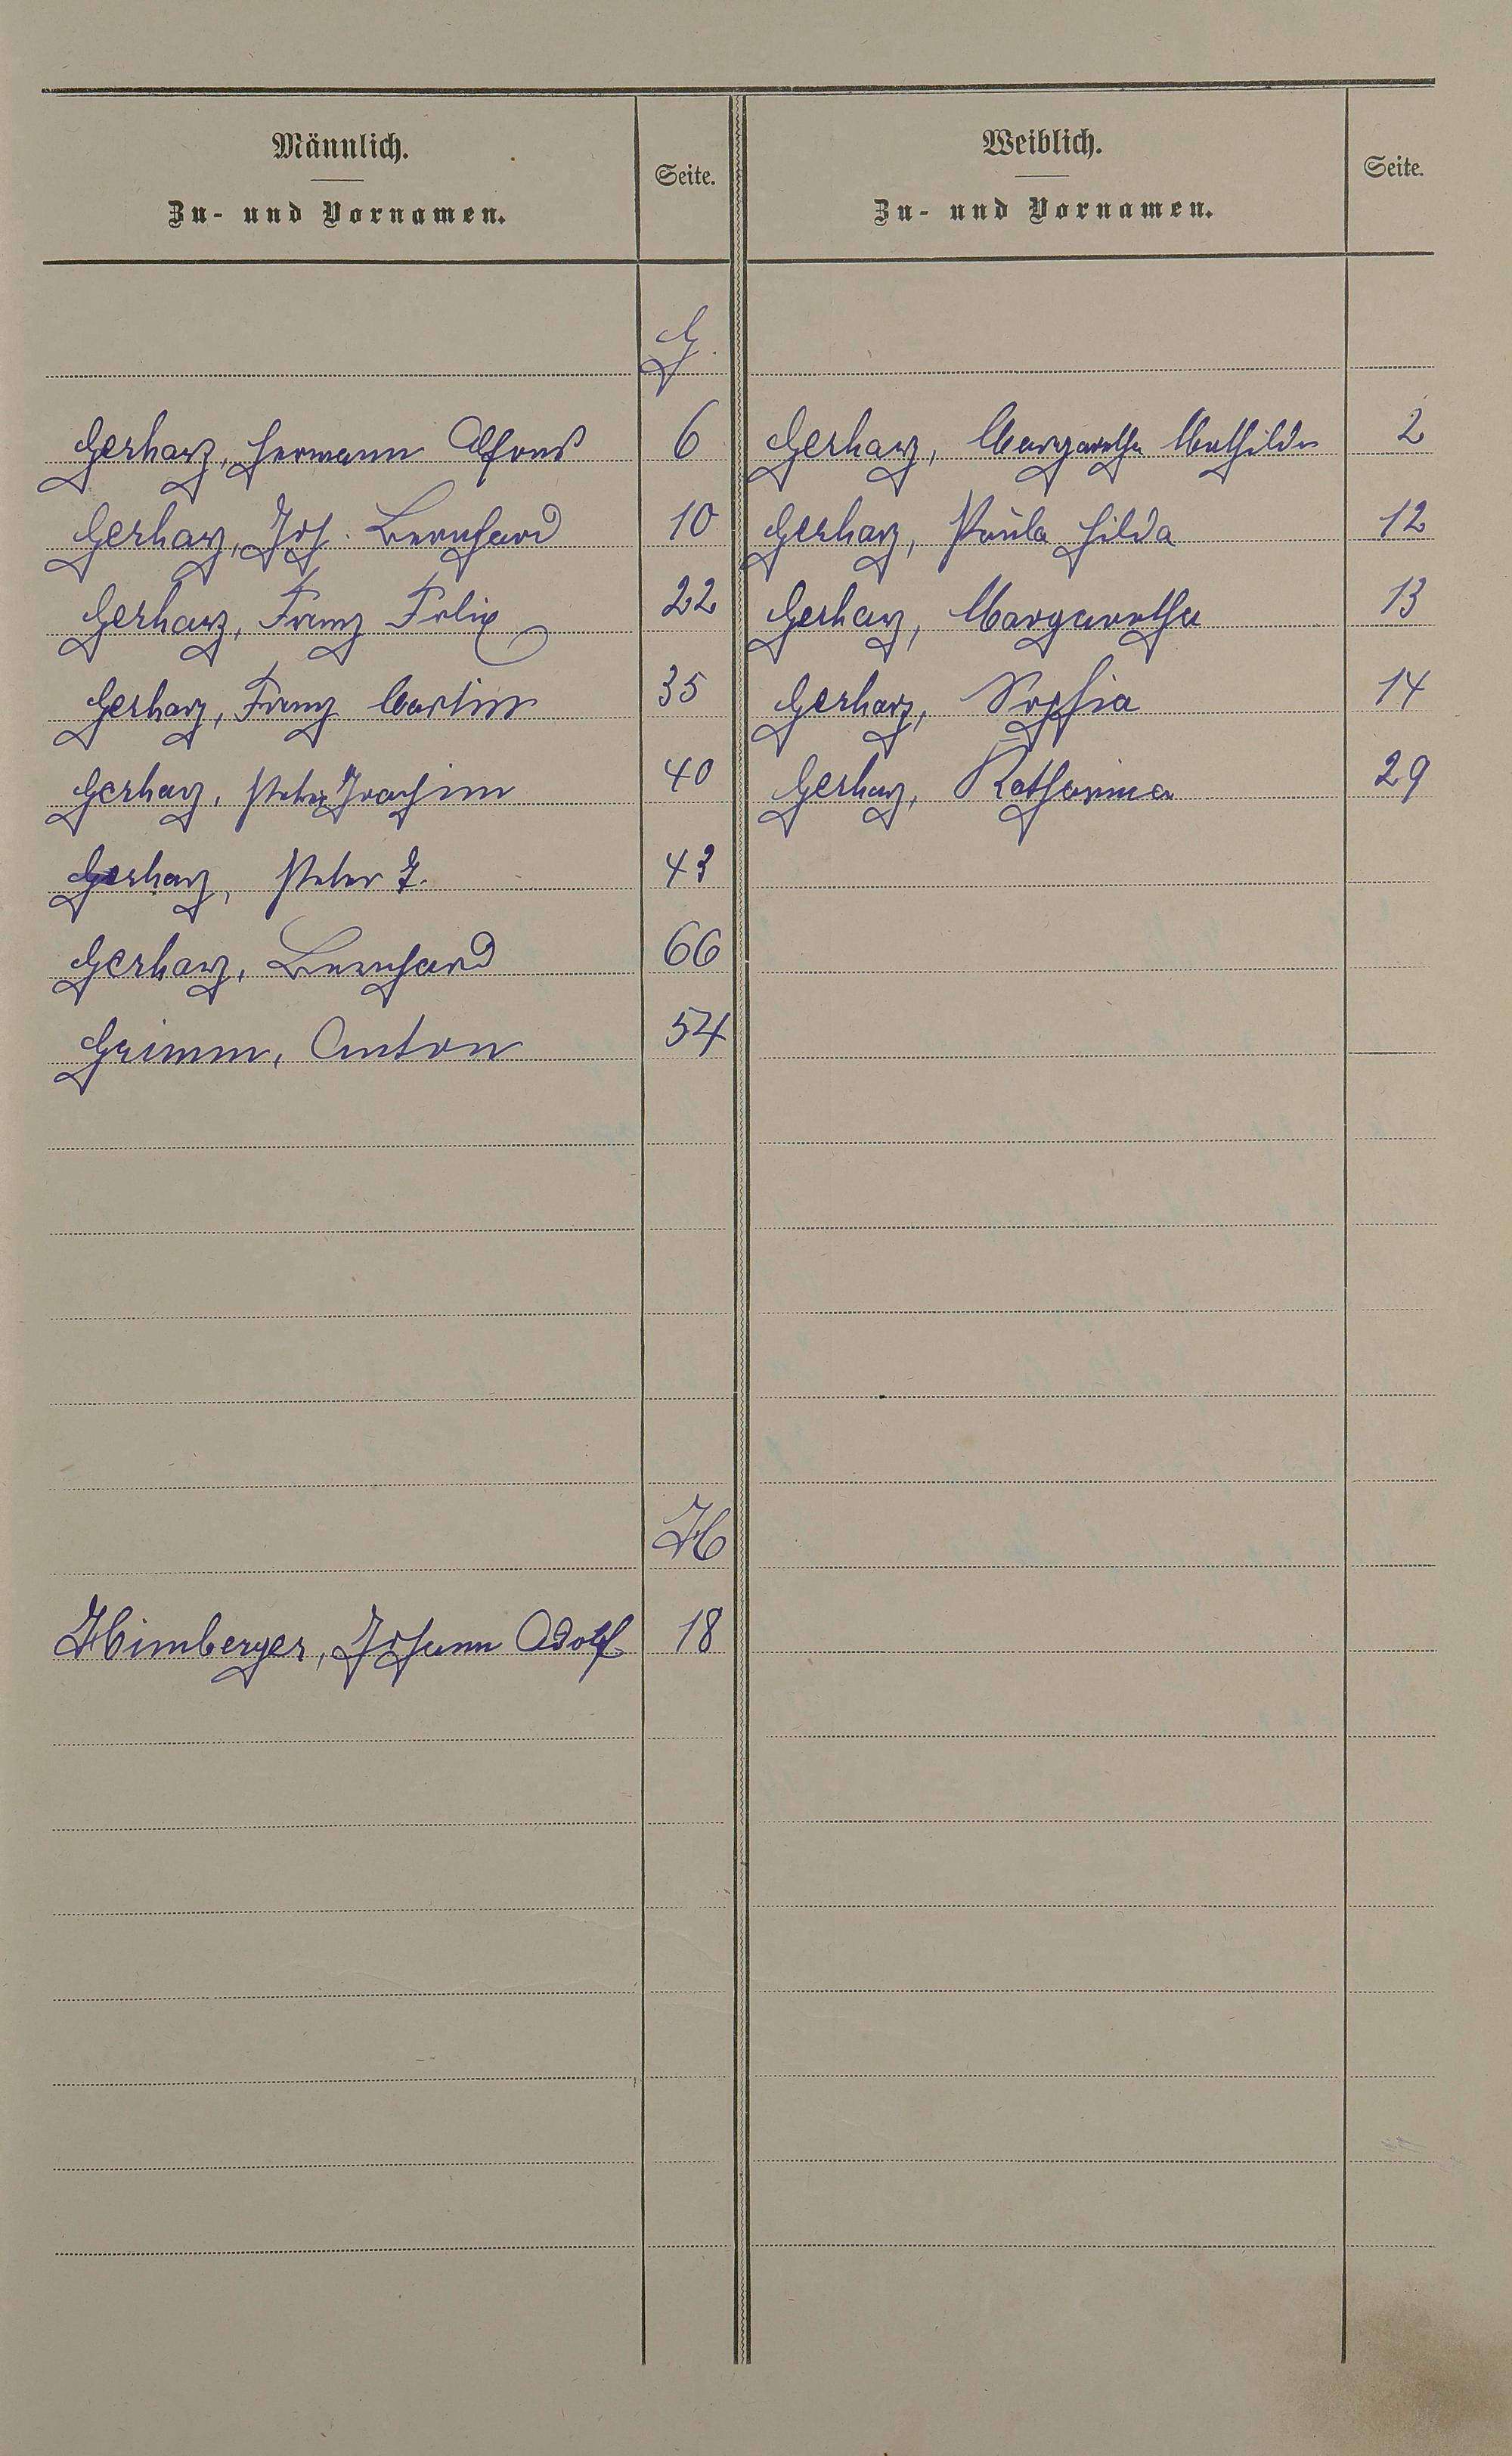 Männlich.
Zu- und Vornamen.
Seite.
Weiblich.
Zu- und Vornamen.
Seite.
G.
Gerharz, Hermann Alfons 6 Gerharz, Margaretha Mathilde 2
Gerharz, Joh. Bernhard 10 Gerharz, Paula Hilda 12
Gerharz, Franz Felix 22 Gerharz, Margaretha 13
Gerharz, Franz Martin 35 Gerharz, Sophia 14
Gerharz, Peter Joachim 40 Gerharz, Katharina 29
Gerharz, Peter J. 43
Gerharz, Bernhard 66
Grimm, Anton 54
H
Himberger, Johann Adolf 18